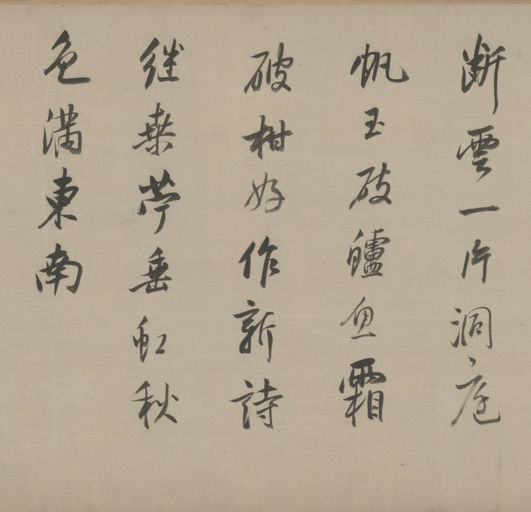 断雲一片洞庭
帆玉破鱸魚霜
破柑好作新詩
继桑苧垂虹秋
色滿東南